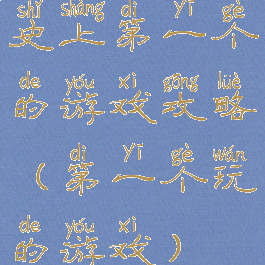 shǐ shàng dì yī gè
史上第一个
de yóu xì gōng lüè
的游戏攻略
dì yī gè wán
（第一个玩
de yóu xì
的游戏）